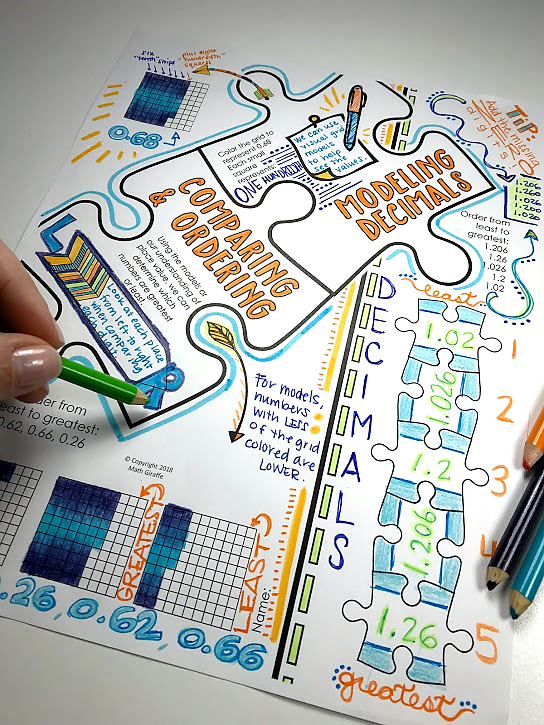 six "tenth" strips
plus eight
"hundredth"
squares
0.68
Color the grid to
represent 0.68
Each small
square
represents:
ONE HUNDREDTH
We can use
visual grid
models
to help
us see the
values.
MODELING
DECIMALS
TiP:
Add the missing
digits
1.206
1.260
1.026
1.200
1.020
Order from
least to
greatest:
1.206
1.26
1.026
1.2
1.02
COMPARING
& ORDERING
Using the models or
our understanding of
place value, we can
determine which
numbers are greatest
or least.
Look at each place
from left to right
when comparing
each digit.
order from
least to greatest:
0.62, 0.66, 0.26
© Copyright 2018
Math Giraffe
For models,
numbers
with LESS
of the grid
colored are
LOWER.
GREATEST
LEAST
Name:
0.26, 0.62, 0.66
DECIMALS
least
1.02
1
1.026
2
1.2
3
1.206
4
1.26
5
greatest